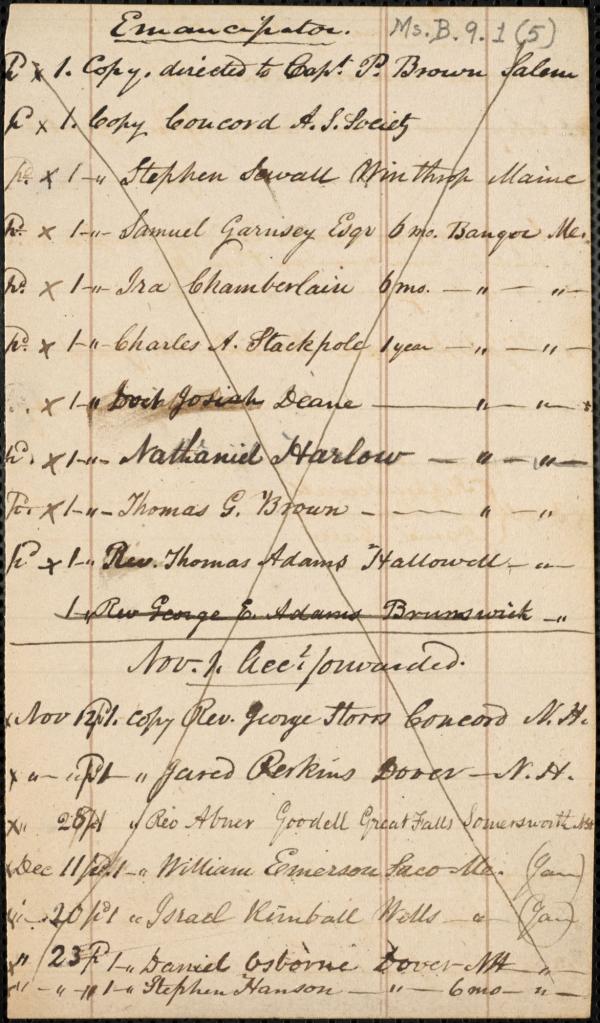 Emancipator. Ms. B. 9. 1 (5)
pd x 1. Copy, directed to Capt P. Brown Salem
pd x 1. Copy Concord A. S. Society
pd. x 1 - " Stephen Sewall Winthrop Maine
pd. x 1 - " - Samuel Garnsey Esqr 6 mo. Bangor Me.
pd. x 1 - " - Ira Chamberlain 6 mo. - " - " -
pd. x 1 - " - Charles A. Stackpole 1 year - " - " -
x 1 - " Josiah Deane - " - " -
pd. x 1 - " - Nathaniel Harlow - " - " -
x 1 - " - Thomas G. Brown - - " - "
pd x 1 - " Rev. Thomas Adams Hallowell - " -
1 " Rev George E. Adams Brunswick - "
Nov. 1. Acct forwarded.
x Nov 12 pd 1. copy Rev. George Storrs Concord N. H.
x " - " pd 1 - " Jared Perkins Dover - N. H.
x " 28 pd " Rev Abner Goodell Great Falls Somersworth NH
x Dec 11 pd. 1 - " William Emerson Saco Me. (Jan)
x " - 20 pd 1 " Israel Kimball Wells - " (Jan)
x " 23 pd 1 - " Daniel Osborne Dover NH - " -
" - " - " 1 - " Stephen Hanson - " - 6 mo - " -